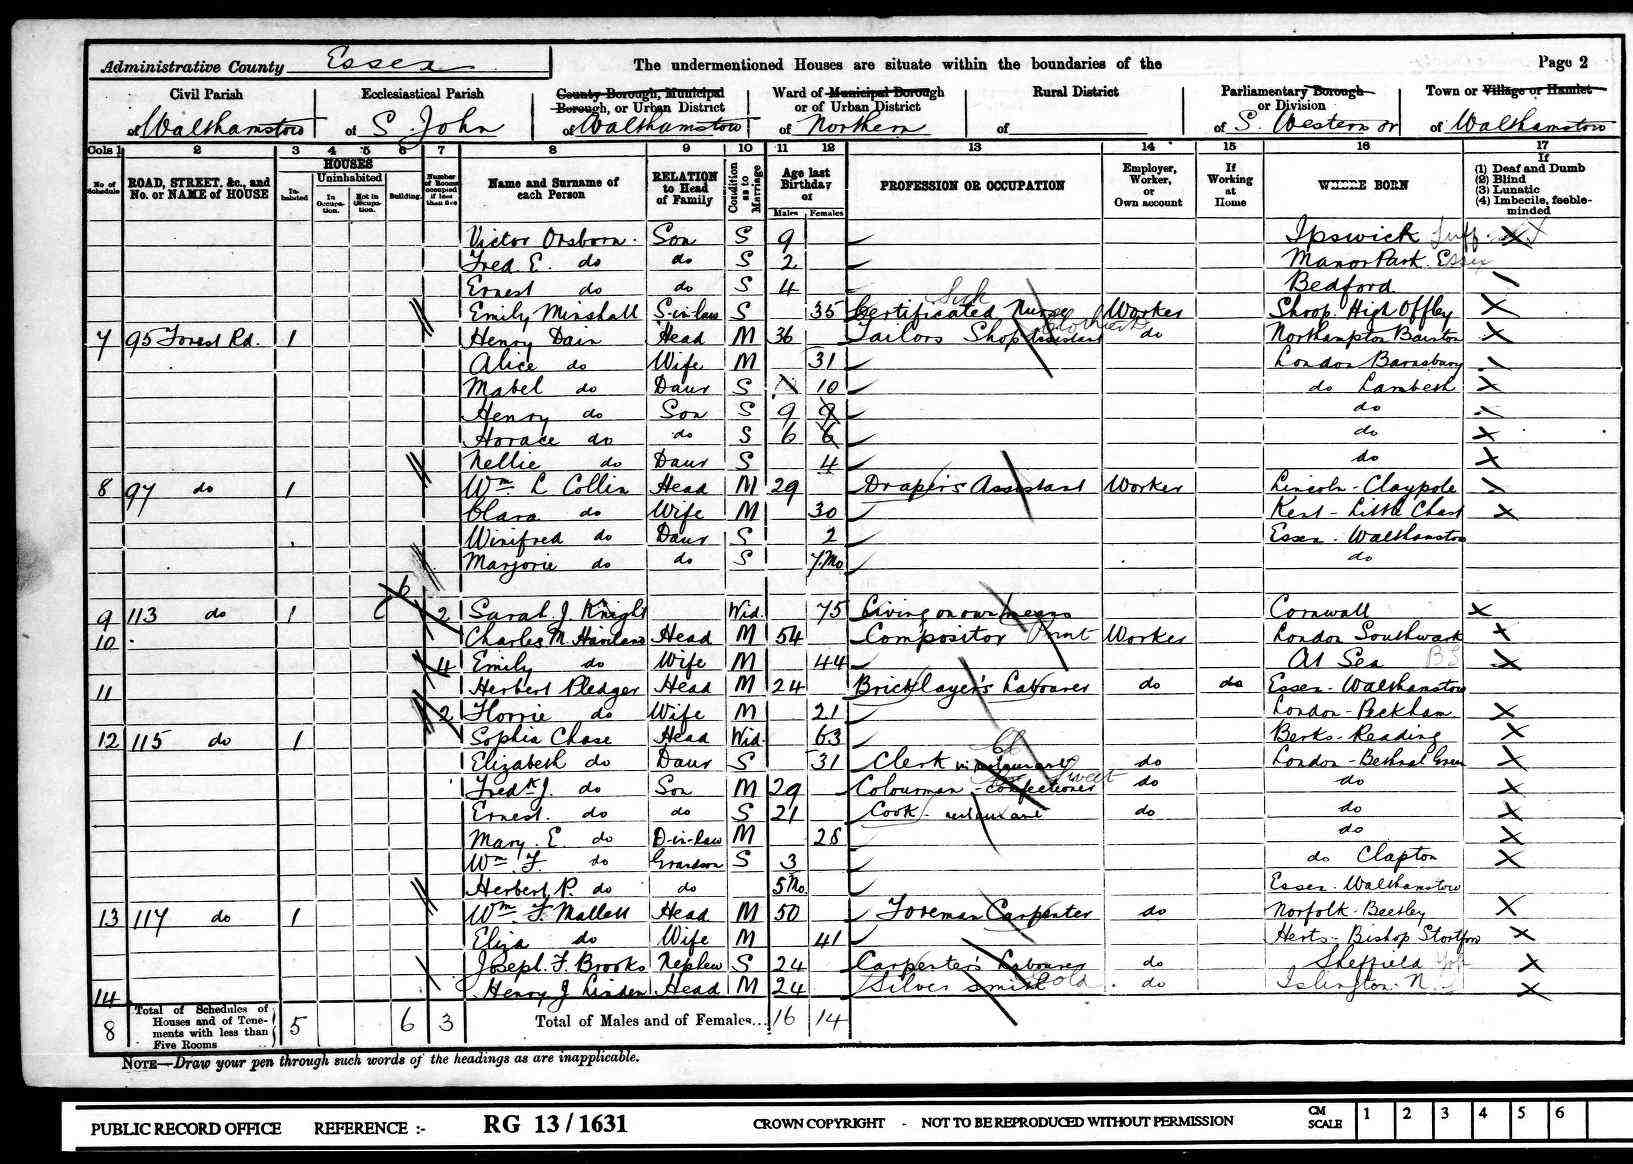 Administrative County Essex
The undermentioned Houses are situate within the boundaries of the
Page 2
Civil Parish of Walthamstow
Ecclesiastical Parish of S. John
County Borough, Municipal Borough, or Urban District of Walthamstow
Ward of Municipal Borough or of Urban District of Northern
Rural District of
Parliamentary Borough or Division of S. Western or
Town or Village or Hamlet of Walthamstow
Cols 1 2 3 4 5 6 7 8 9 10 11 12 13 14 15 16 17
No of Schedule
ROAD, STREET, &c., and No. or NAME of HOUSE
HOUSES
Inhabited
Uninhabited
In Occupation.
Not in Occupation.
Building.
Number of Rooms occupied if less than five
Name and Surname of each Person
RELATION to Head of Family
Condition as to Marriage
Age last Birthday of
Males Females
PROFESSION OR OCCUPATION
Employer, Worker, or Own account
If Working at Home
WHERE BORN
If
(1) Deaf and Dumb
(2) Blind
(3) Lunatic
(4) Imbecile, feeble-minded
Victor Orsborn. Son S 9 Ipswich Suff.
Fred. E. do do S 2 Manor Park. Essex
Ernest do do S 4 Bedford
Emily Minshall S-in-law S 35 Certificated Sick Nurse Worker Shrop High Offley
7 95 Forest Rd. 1 Henry Dain Head M 36 Tailors Shop Assistant Clothier do Northampton
Alice do Wife M 31 London Barnsbury
Mabel do Daur S 10 do Lambeth
Henry do Son S 9 9 do
Horace do do S 6 6 do
Nellie do Daur S 4 do
8 97 do 1 Wm. L Collin Head M 29 Draper's Assistant Worker Lincoln - Claypole
Clara do Wife M 30 Kent - Little Chart
Winifred do Daur S 2 Essex. Walthamstow
Marjorie do do S 7.Mo do
6
9 113 do 1 2 Sarah J. Knight Wid. 75 Living on own means Cornwall
10 Charles M. Head M 54 Compositor Print Worker London Southwark
4 Emily do Wife M 44 At Sea
11 Herbert Pledger Head M 24 Bricklayer's Labourer do do Essex - Walthamstow
2 Florrie do Wife M 21 London - Peckham
12 115 do 1 Sophia Chase Head Wid. 63 Berks - Reading
Elizabeth do Daur S 31 Clerk in restaurant do London - Bethnal Green
Fredk J. do Son M 29 Colourman - Confectioner Sweet do do
Ernest. do do S 21 Cook. restaurant do do
Mary. E. do D-in-law M 28 do
Wm F. do Grandson S 3 do Clapton
Herbert P. do do 5 Mo Essex. Walthamstow
13 117 do 1 Wm. F. Mallett Head M 50 Foreman Carpenter do Norfolk - Beetley
Eliza do Wife M 41 Herts - Bishop Stortford
Joseph. F. Brooks Nephew S 24 Carpenter's Labourer do Sheffield
14 Henry J Linden Head M 24 Silver Smith Gold do Islington. N.
8 Total of Schedules of Houses and of Tenements with less than Five Rooms 5 6 3 Total of Males and of Females... 16 14
NOTE—Draw your pen through such words of the headings as are inapplicable.
PUBLIC RECORD OFFICE REFERENCE :- RG 13/1631 CROWN COPYRIGHT - NOT TO BE REPRODUCED WITHOUT PERMISSION CM SCALE 1 2 3 4 5 6